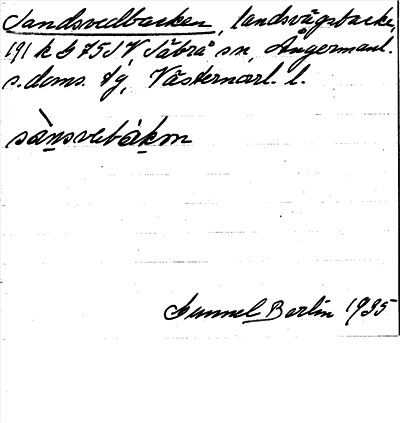 Sandsvedbacken, landsvägsbacke,
191 h G 75 J V, Säbrå sn, Ångermanl.
s. doms. dg, Västernorrl. l.
sànsvebàkɒn
Gunnel Berlin 1935